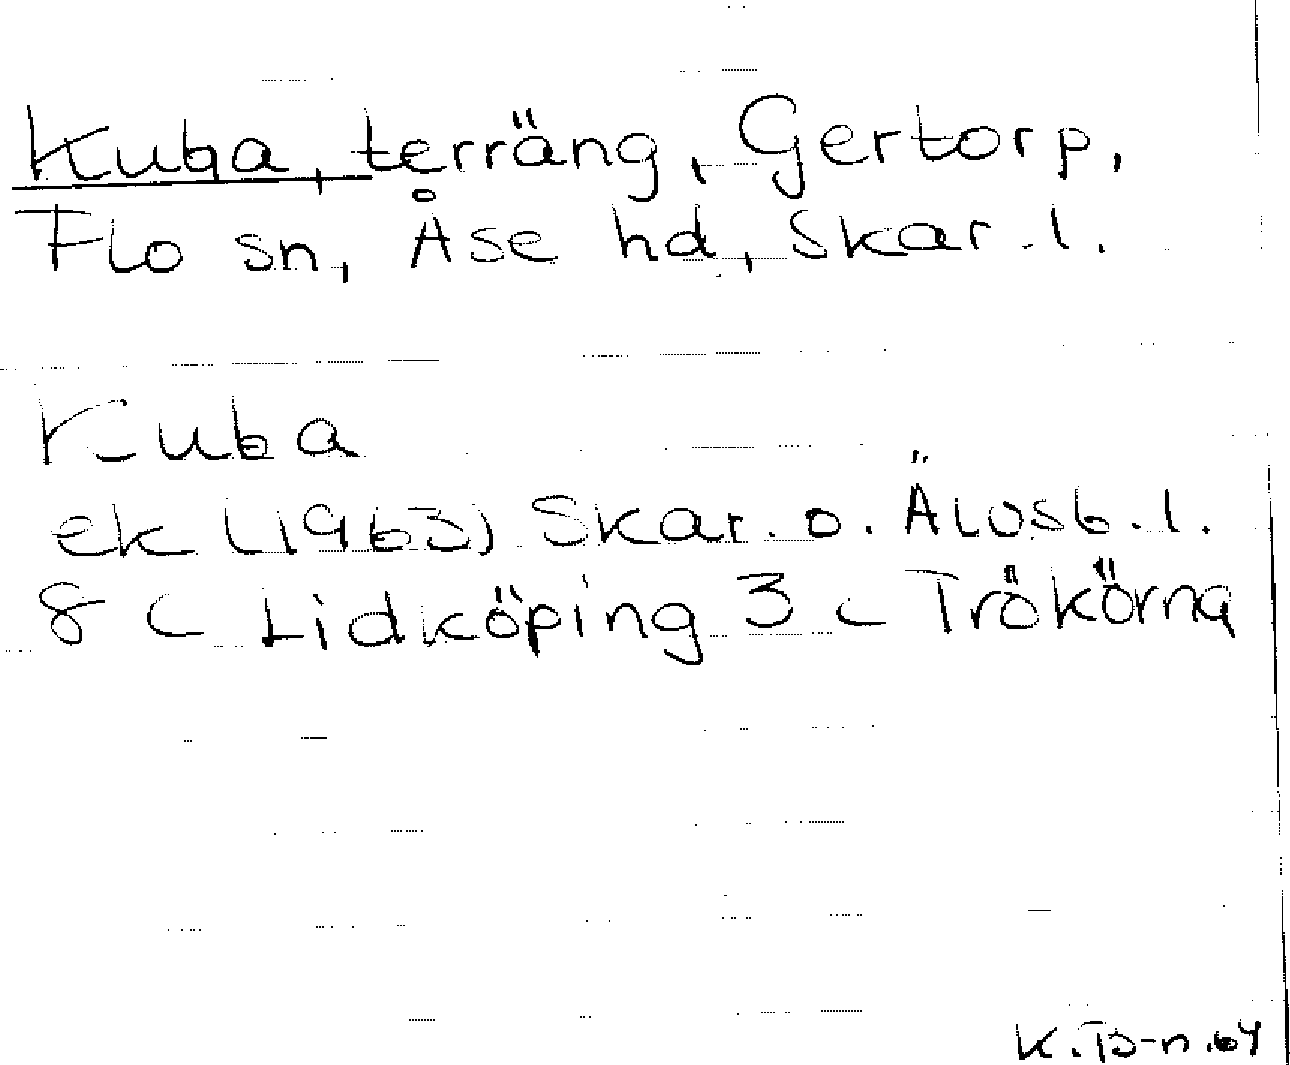 Kuba, terräng, Gertorp,
Flo sn, Åse hd, Skar. l.
Kuba
ek (1963) Skar. o. Älvsb. l.
8 C Lidköping 3 c Trökörna
K. B-n. 64